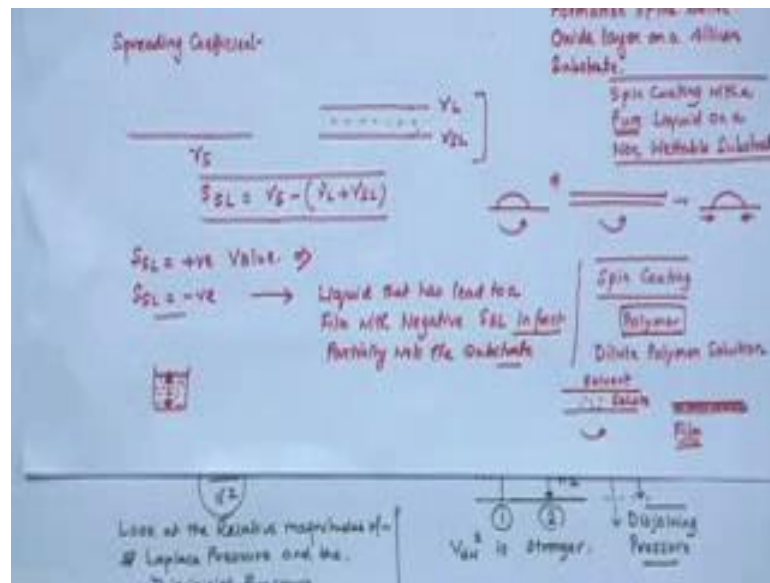 Spreading Coefficient-
Oxide layer on a
Substrate.
Spin Coating with a
Pure Liquid on a
Non Wettable Substrate
γL
γSL
γS
SSL = γS - (γL + γSL)
SSL = +ve Value. ⇒
SSL = -ve → Liquid that has lead to a
Film with Negative SSL in fact
Partially wets the Substrate
Spin Coating
Polymer
Dilute Polymer Solution.
Solvent
Solute
Film
Look at the Relative magnitudes of
Laplace Pressure and the
① ②
is Stronger.
Disjoining
Pressure